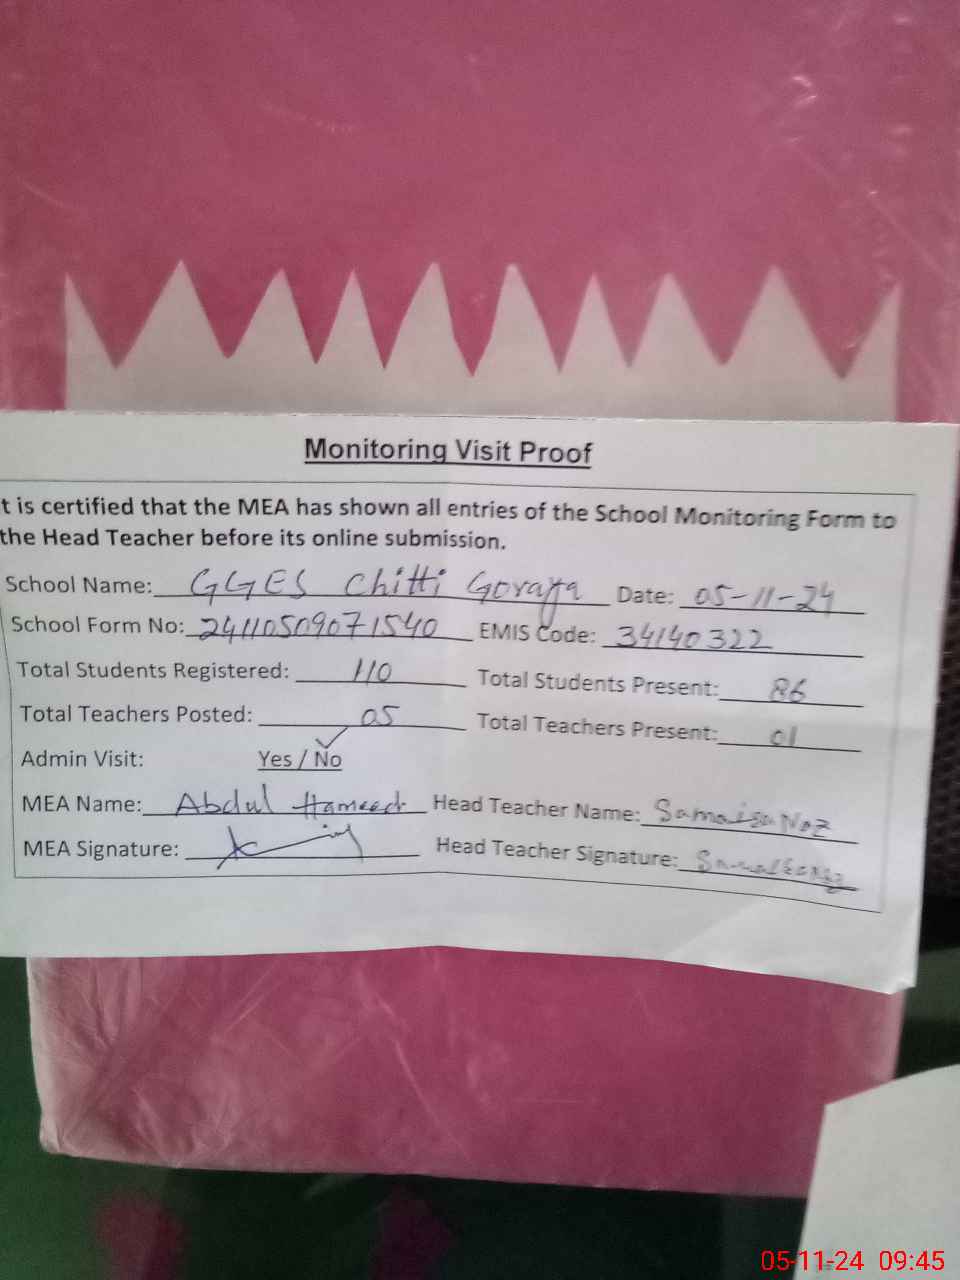 Monitoring Visit Proof
t is certified that the MEA has shown all entries of the School Monitoring Form to
the Head Teacher before its online submission.
School Name: GGES Chitti Goraya Date: 05-11-24
School Form No: 24110509071540 EMIS Code: 34140322
Total Students Registered: 110 Total Students Present: 86
Total Teachers Posted: 05 Total Teachers Present: 01
Admin Visit: Yes / No
MEA Name: Abdul Hameed Head Teacher Name: Naz
MEA Signature: Head Teacher Signature:
05-11-24 09:45